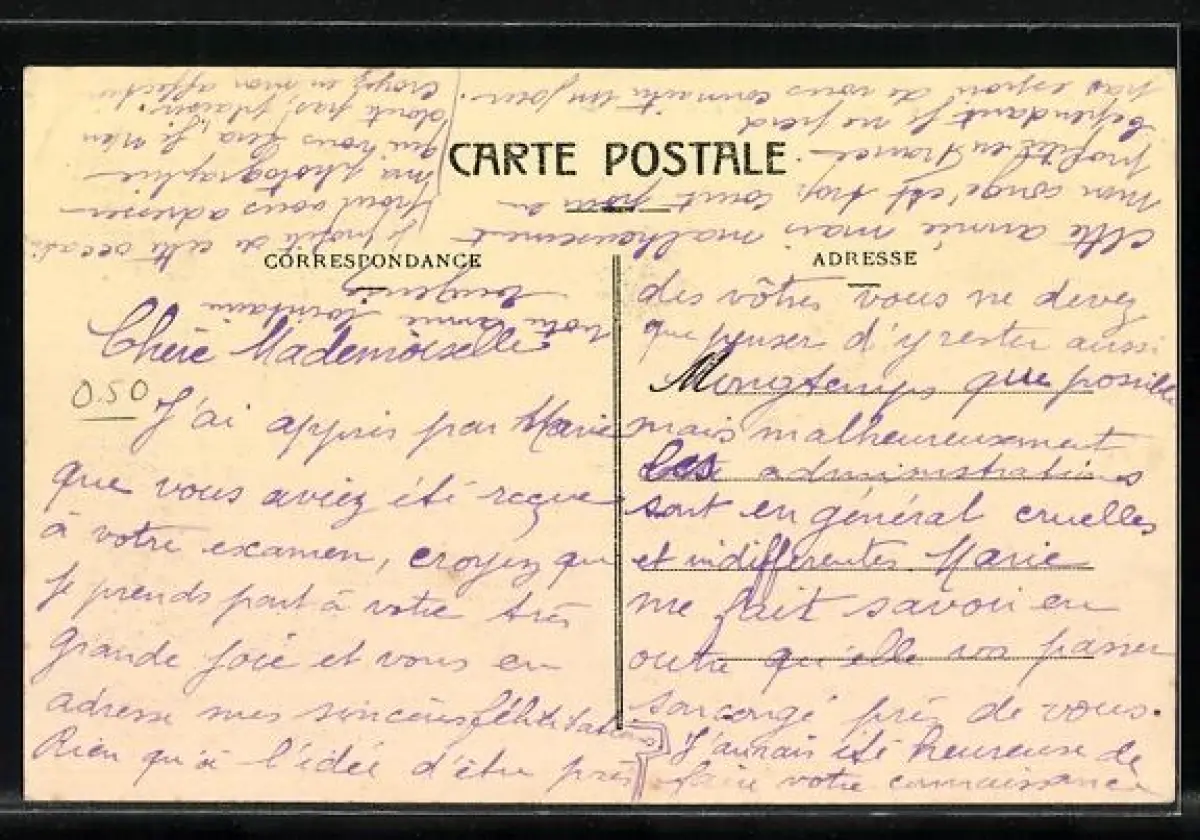 CARTE POSTALE
CORRESPONDANCE
ADRESSE
0.50
Chère Mademoiselle
J'ai appris par Marie
que vous aviez été reçue
à votre examen, croyez que
je prends part à votre très
grande joie et vous en
adresse mes sincères félicitations.
Rien qu'à l'idée d'être près
des vôtres vous ne devez
que penser d'y rester aussi
longtemps que possible
mais malheureusement
les administrations
sont en général cruelles
et indifférentes. Marie
me fait savoir en
outre qu'elle va passer
son congé près de vous.
J'aurais été heureuse de
faire votre connaissance
cette année mais malheureusement
mon congé est trop court pour en
profiter en France.
Cependant je ne perd
pas espoir de vous connaitre un jour.
Je profite de cette occasion
pour vous adresser
ma photographie
qui vous fera, je n'en
doute pas, plaisir.
Croyez en mon affection
Votre amie lointaine
Eugénie